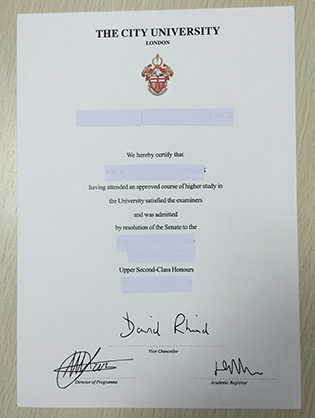 THE CITY UNIVERSITY
LONDON
We hereby certify that
having attended an approved course of higher study in
the University satisfied the examiners
and was admitted
by resolution of the Senate to the
Upper Second-Class Honours
David Rhind
Vice-Chancellor
Director of Programme
Academic Registrar